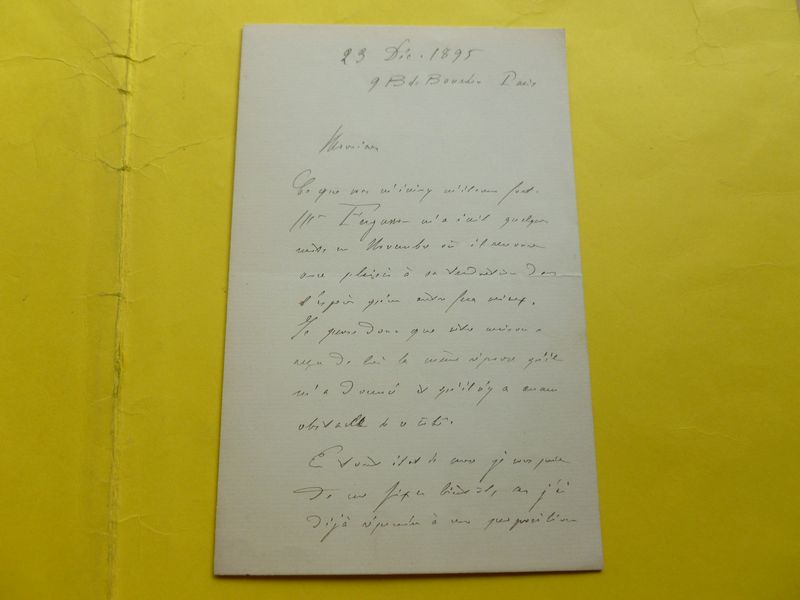 23 Déc. 1895
9 Bd Bourdon Paris
Monsieur
Ce que vous m'écrivez m'étonne fort.
Mr Ferguson m'a écrit quelques
mots en Novembre où il renonce
avec plaisir à sa traduction dans
l'espoir qu'un autre fera mieux.
Je pense donc que votre maison a
reçu de lui la même réponse qu'il
m'a donné et qu'il n'y a aucun
obstacle de ce côté.
En tout état de cause je vous prie
de me fixer bientôt, car j'ai
déjà répondu à une proposition